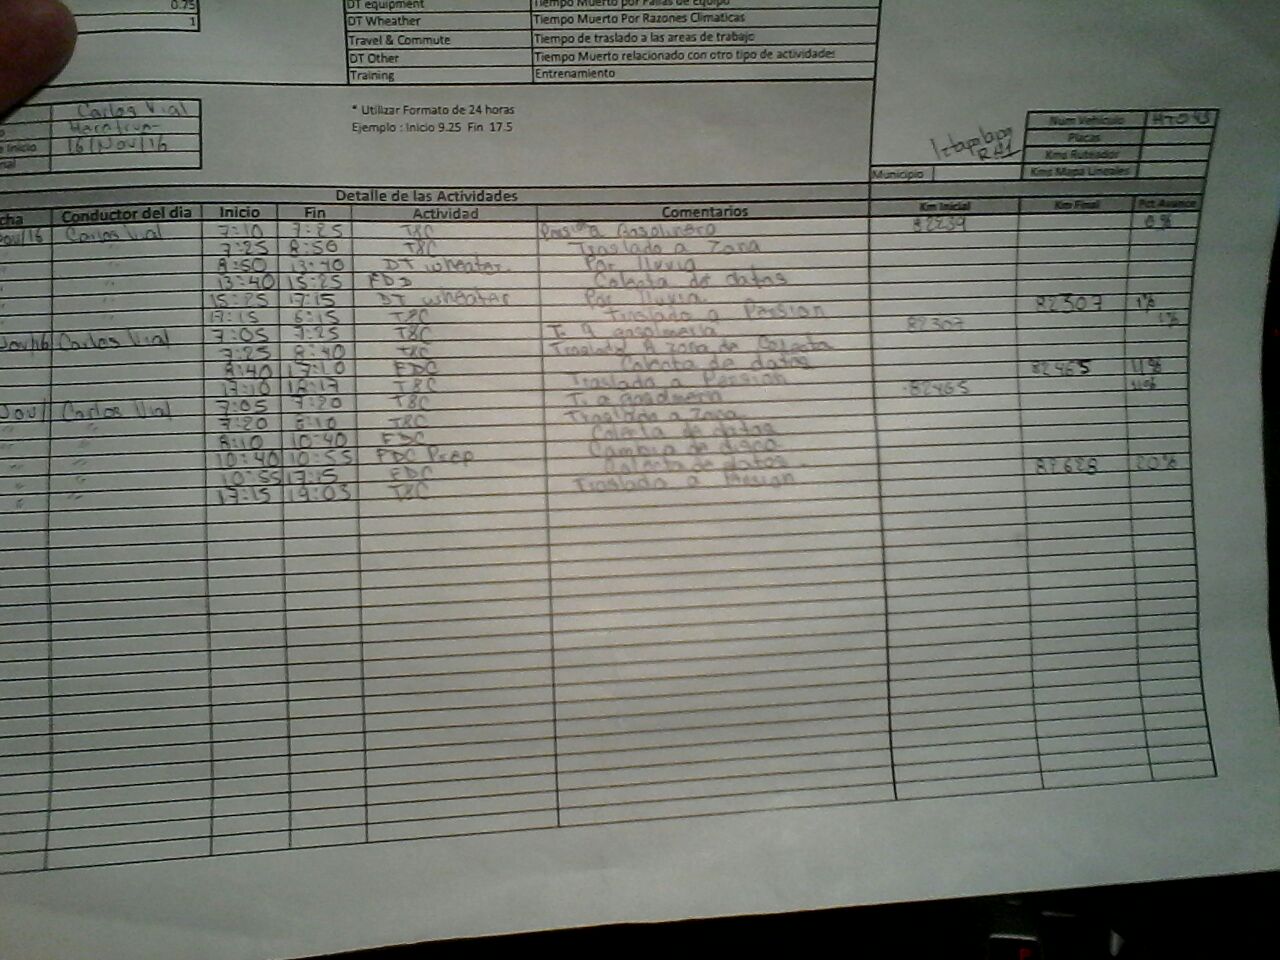 0.75 DT equipment Tiempo Muerto por Fallas de Equipo
1 DT Wheather Tiempo Muerto Por Razones Climaticas
Travel & Commute Tiempo de traslado a las areas de trabajo
DT Other Tiempo Muerto relacionado con otro tipo de actividades
Training Entrenamiento
Carlos Vial
* Utilizar Formato de 24 horas
Ejemplo : Inicio 9.25 Fin 17.5
Inicio 16/Nov/16
Iztapalapa
Num Vehiculo
Placas
Kms Ruteador
Municipio Kms Mapa Lineales
Detalle de las Actividades
cha Conductor del dia Inicio Fin Actividad Comentarios Km Inicial Km Final Pct Avance
Nov/16 Carlos Vial 7:10 7:25 T&C a Gasolinero 82239 0%
" 7:25 8:50 T&C Traslado a Zona
" 8:50 13:40 DT wheater Por lluvia
" 13:40 15:25 Colecta de datos
" 15:25 17:15 DT wheater Por lluvia 82307 1%
" 17:15 6:15 T&C Traslado a Pension
Carlos Vial 7:05 7:25 T&C T. a gasolineria 82307 1%
7:25 8:40 T&C Traslado A zona de Colecta
8:40 17:10 FDC Colecta de datos 82465 11%
17:10 18:17 T&C Traslado a Pension
Carlos Vial 7:05 7:20 T&C T. a gasolineria 82465
" " 7:20 8:10 T&C Traslado a Zona
" " 8:10 10:40 FDC Colecta de datos
" " 10:40 10:55 FDC Prep Cambio de disco
" " 10:55 17:15 FDC Colecta de datos 82628 20%
" " 17:15 19:03 T&C Traslado a Pension